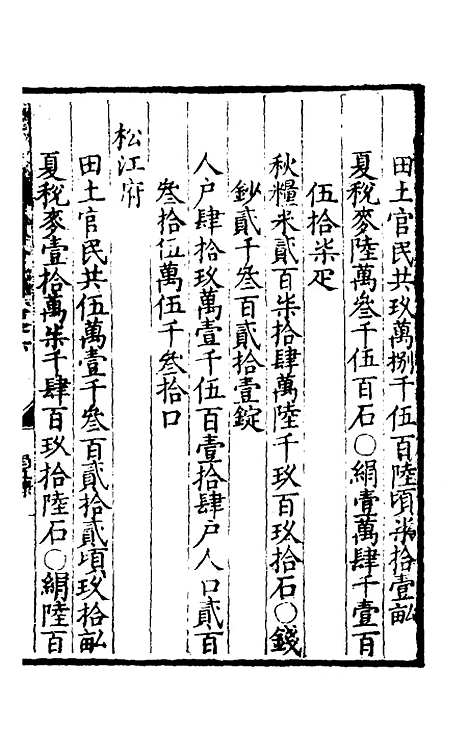 田土官民共玖萬捌千伍百陸頃柒拾壹畝
夏稅麥陸萬叄千伍百石○絹壹萬肆千壹百
伍拾柒疋
秋糧米貳百柒拾肆萬陸千玖百玖拾石○錢
鈔貳千叄百貳拾壹錠
人户肆拾玖萬壹千伍百壹拾肆户人口貳百
叄拾伍萬伍千叄拾口
松江府
田土官民共伍萬壹千叄百貳拾貳頃玖拾畝
夏稅麥壹拾萬柒千肆百玖拾陸石○絹陸百